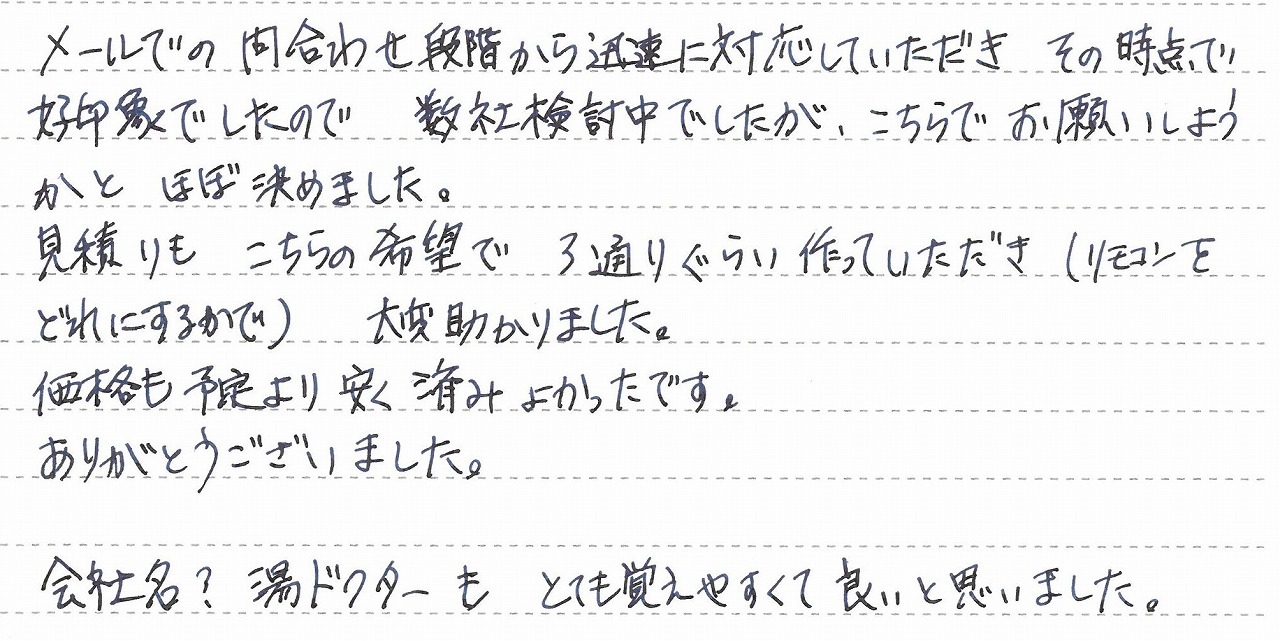 メールでの問合わせ段階から迅速に対応していただき その時点で
好印象でしたので 数社検討中でしたが、こちらでお願いしよう
かと ほぼ決めました。
見積りも こちらの希望で 3通りぐらい作っていただき (リモコンを
どれにするかで) 大変助かりました。
価格も予定より安く済みよかったです。
ありがとうございました。
会社名? 湯ドクターも とても覚えやすくて良いと思いました。